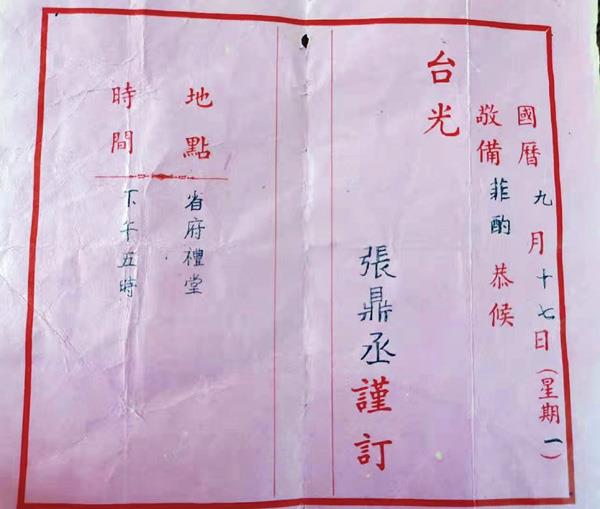 國曆九月十七日(星期一)
敬備菲酌恭候
台光
張鼎丞謹訂
地點 省府禮堂
時間 下午五時